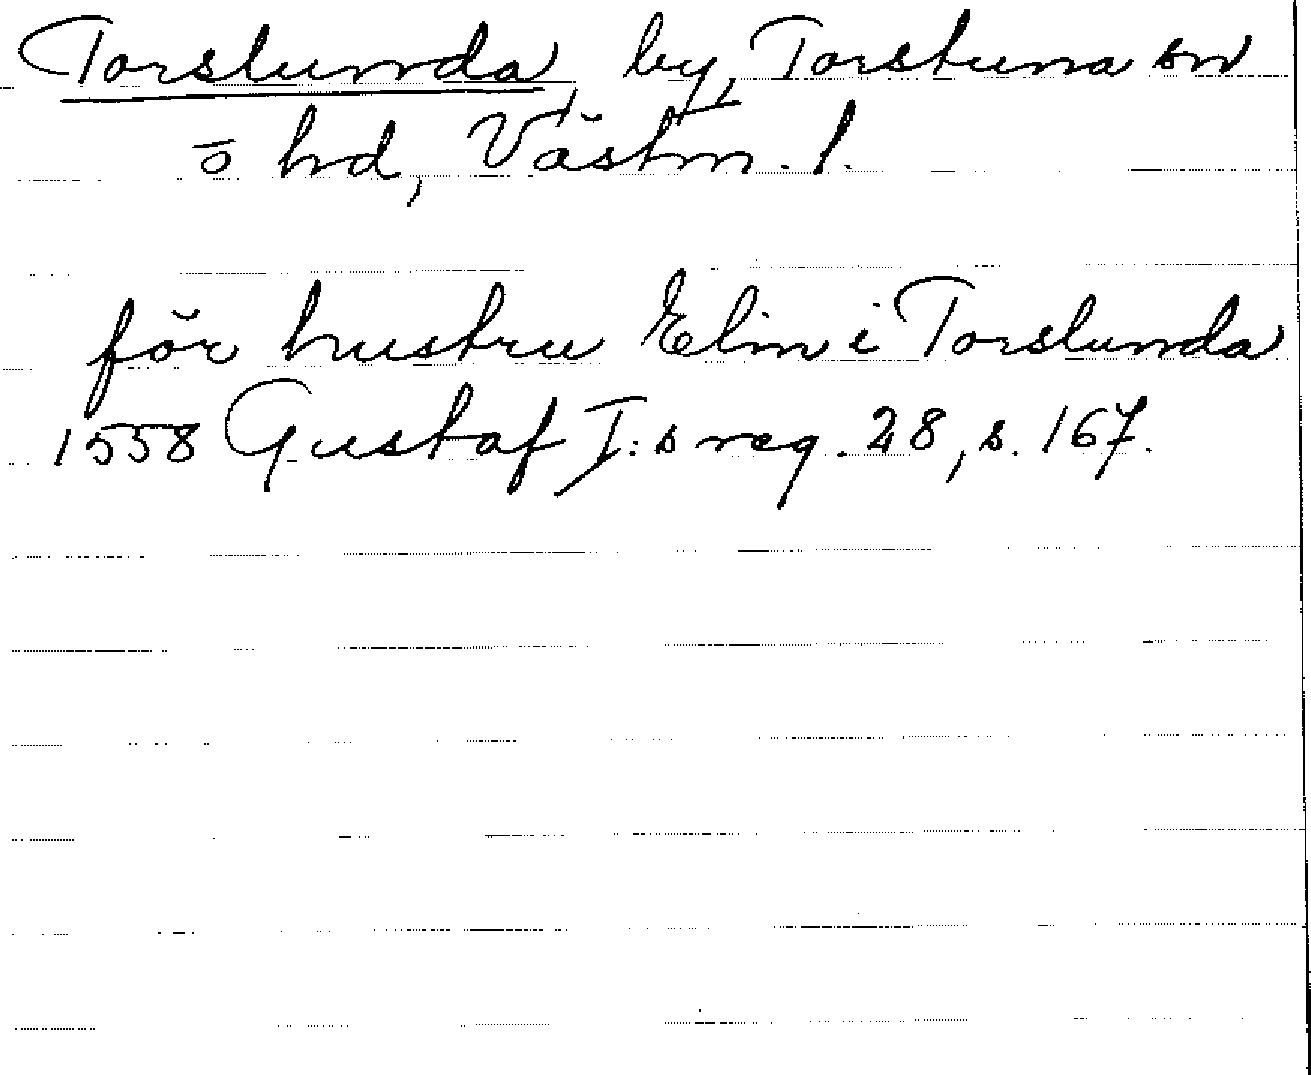 Torslunda, by, Torstuna sn
o hd, Västm. l.
för hustru Elin i Torslunda
1558 Gustaf I:s reg. 28, s. 167.